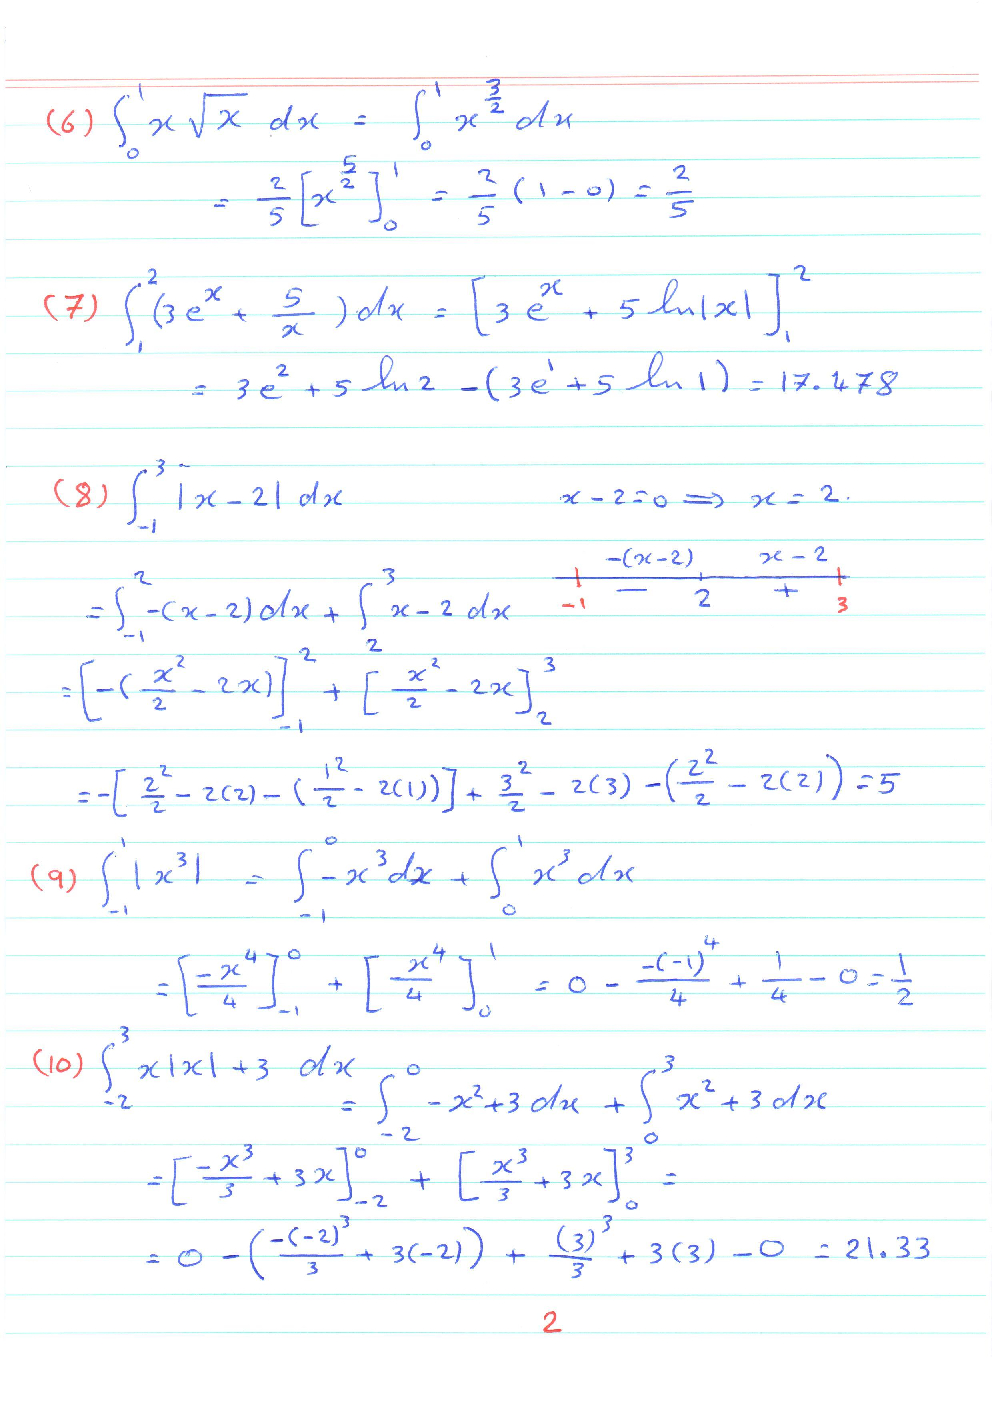 (6) ∫₀¹ x√x dx = ∫₀¹ x^(3/2) dx
= 2/5 [x^(5/2)]₀¹ = 2/5 (1 - 0) = 2/5
(7) ∫₁² (3e^x + 5/x) dx = [3e^x + 5 ln|x|]₁²
= 3e² + 5 ln 2 - (3e¹ + 5 ln 1) = 17.478
(8) ∫₋₁³ |x - 2| dx x - 2 = 0 ⟹ x = 2.
-(x-2) x - 2
= ∫₋₁² -(x - 2) dx + ∫₂³ x - 2 dx -1 — 2 + 3
= [-(x²/2 - 2x)]₋₁² + [x²/2 - 2x]₂³
= -[2²/2 - 2(2) - (1²/2 - 2(1))] + 3²/2 - 2(3) - (2²/2 - 2(2)) = 5
(9) ∫₋₁¹ |x³| = ∫₋₁⁰ -x³ dx + ∫₀¹ x³ dx
= [-x⁴/4]₋₁⁰ + [x⁴/4]₀¹ = 0 - -(-1)⁴/4 + 1/4 - 0 = 1/2
(10) ∫₋₂³ x|x| + 3 dx
= ∫₋₂⁰ -x² + 3 dx + ∫₀³ x² + 3 dx
= [-x³/3 + 3x]₋₂⁰ + [x³/3 + 3x]₀³ =
= 0 - (-(-2)³/3 + 3(-2)) + (3)³/3 + 3(3) - 0 = 21.33
2